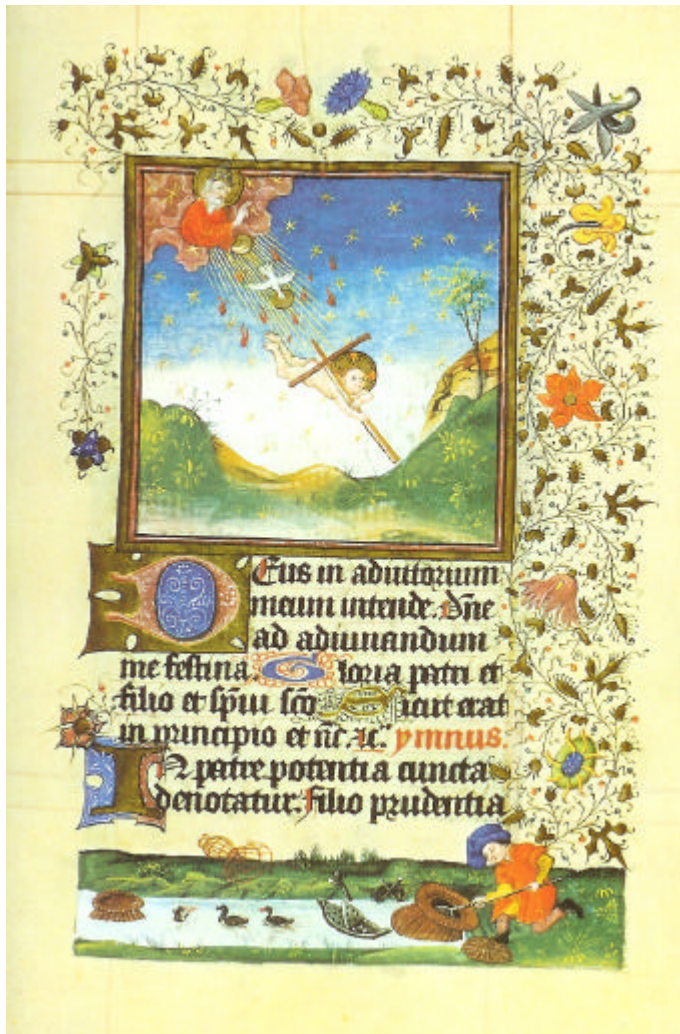 Deus in adiutorium
meum intende. Dn̄e
ad adiuuandum
me festina. Gloria patri et
filio et sp̄ui sc̄o Sicut erat
in principio et nc̄. ⁊c̄. ymnus.
In patre potentia cuncta
denotatur. filio prudentia